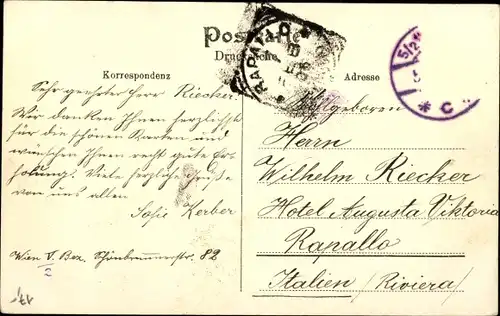 Postkarte
Drucksache.
Korrespondenz
Adresse
RAPALLO
5/2
* C
Sehr geehrter Herr Riecker.
Wir danken Ihnen herzlichst
für die schönen Karten und
wünschen Ihnen recht gute Er-
holung. Viele herzliche Grüße
von uns allen
Sofie Kerber
Wien V. Bez. Schönbrunnerstr. 82
2
Herrn
Wilhelm Riecker
Hotel Augusta Viktoria
Rapallo
Italien (Riviera)